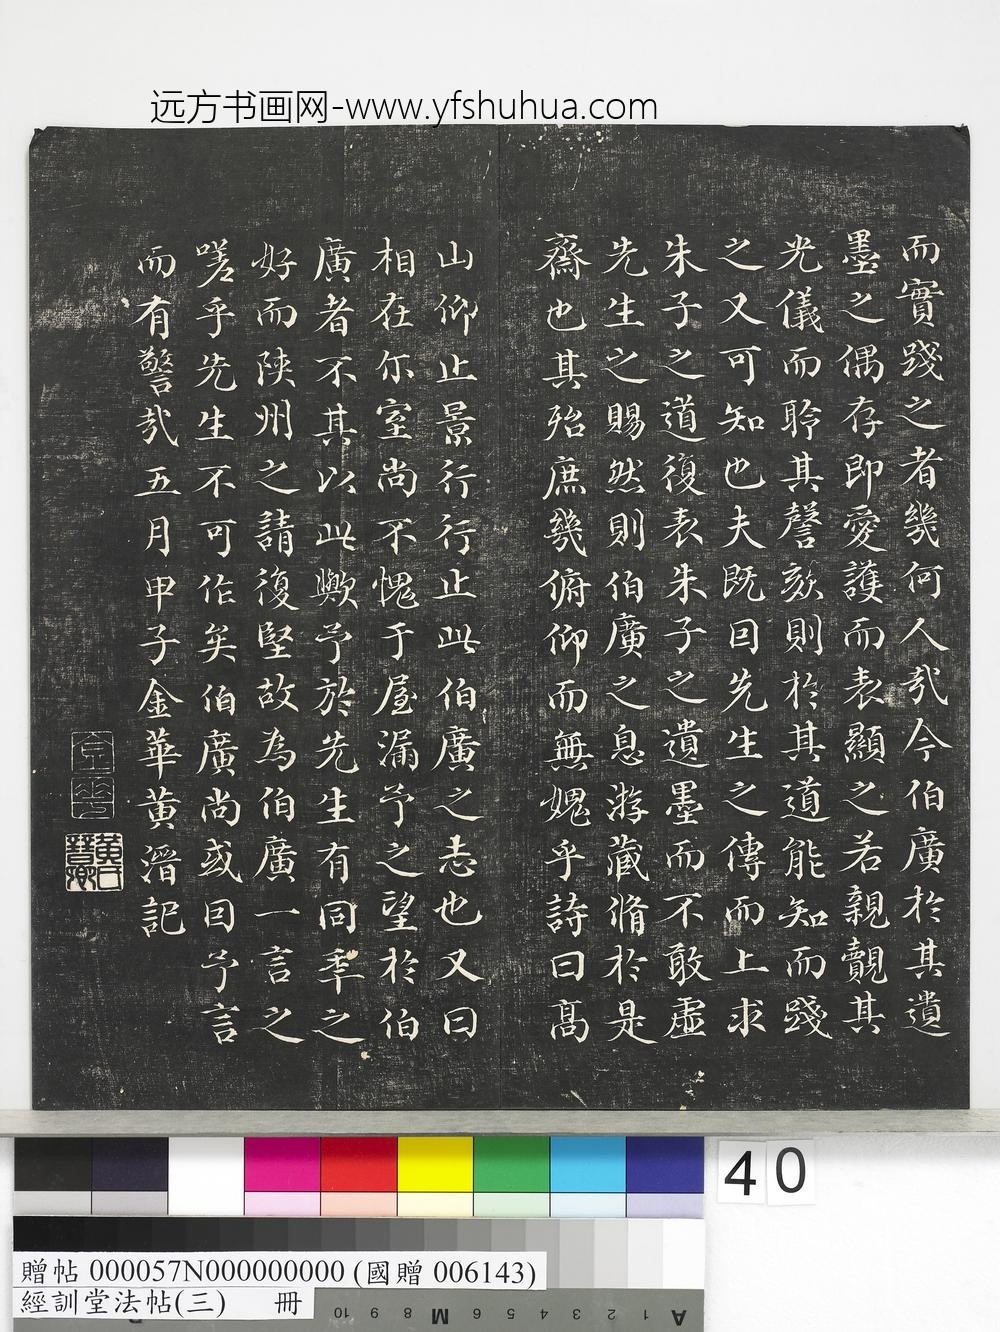 远方书画网-www.yfshuhua.com
而實踐之者幾何人哉今伯廣於其遺
墨之偶存即愛護而表顯之若親覿其
光儀而聆其謦欬則於其道能知而踐
之又可知也夫既曰先生之傳而上求
朱子之道復表朱子之遺墨而不敢虛
先生之賜然則伯廣之息游藏脩於是
齋也其殆庶幾俯仰而無媿乎詩曰高
山仰止景行行止此伯廣之志也又曰
相在尔室尚不愧于屋漏予之望於伯
廣者不其以此歟予於先生有同年之
好而陝州之請復堅故為伯廣一言之
嗟乎先生不可作矣伯廣尚或曰予言
而有警哉五月甲子金華黃溍記
40
贈帖 000057N000000000 (國贈 006143)
經訓堂法帖(三) 冊
10 9 8 M 6 5 4 3 2 1 A